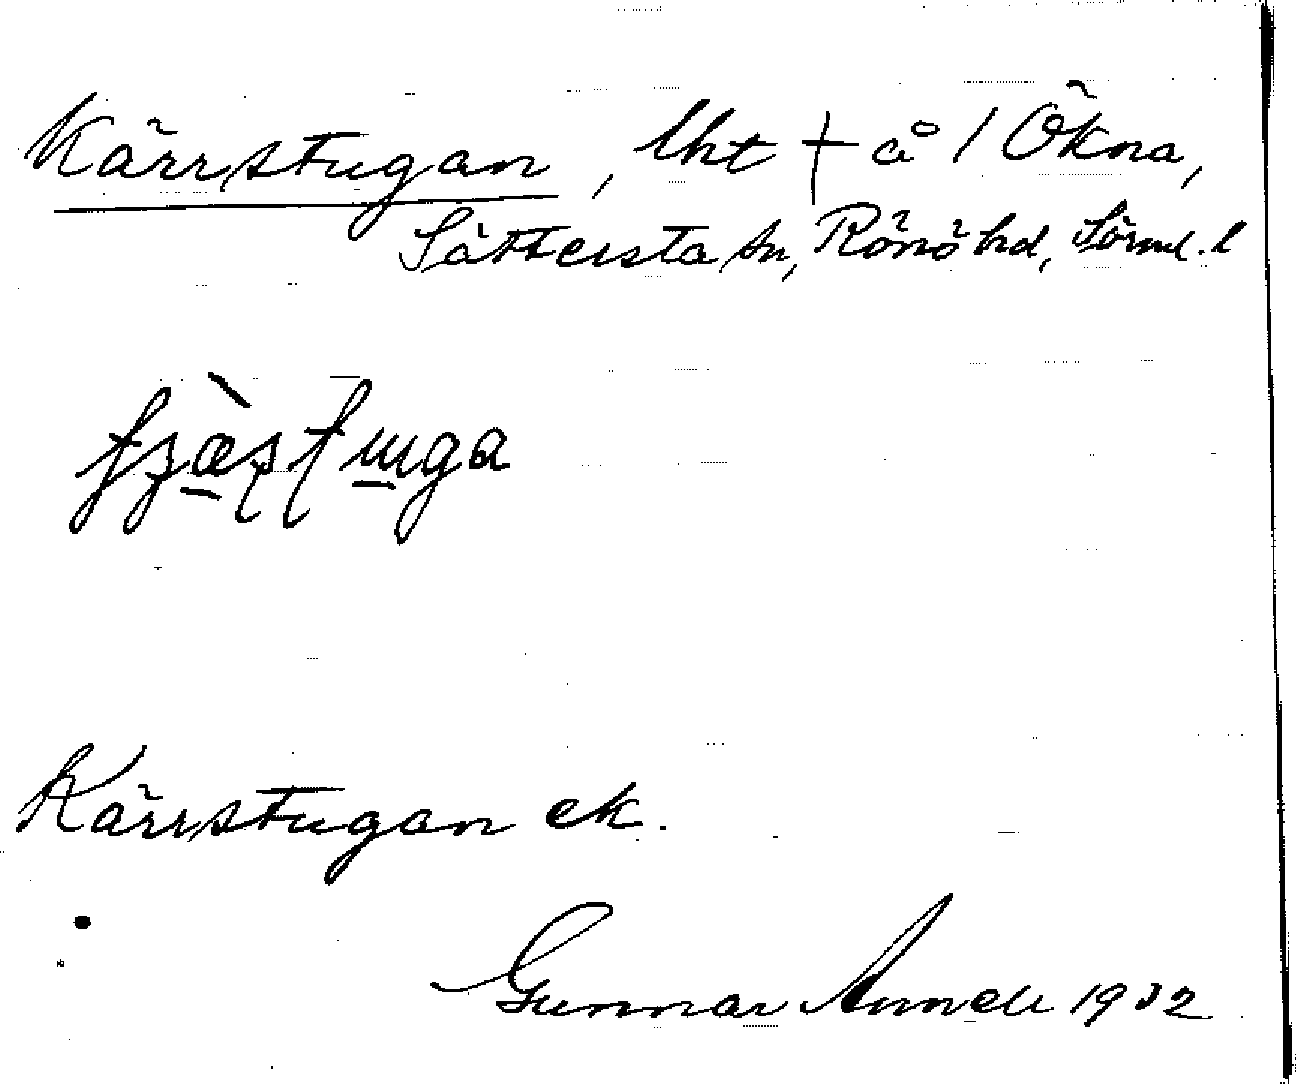 Kärrstugan, lht † å 1 Ökna,
Sättersta sn, Rönö hd, Sörml. l
Kärrstugan ek.
Gunnar Annell 1932